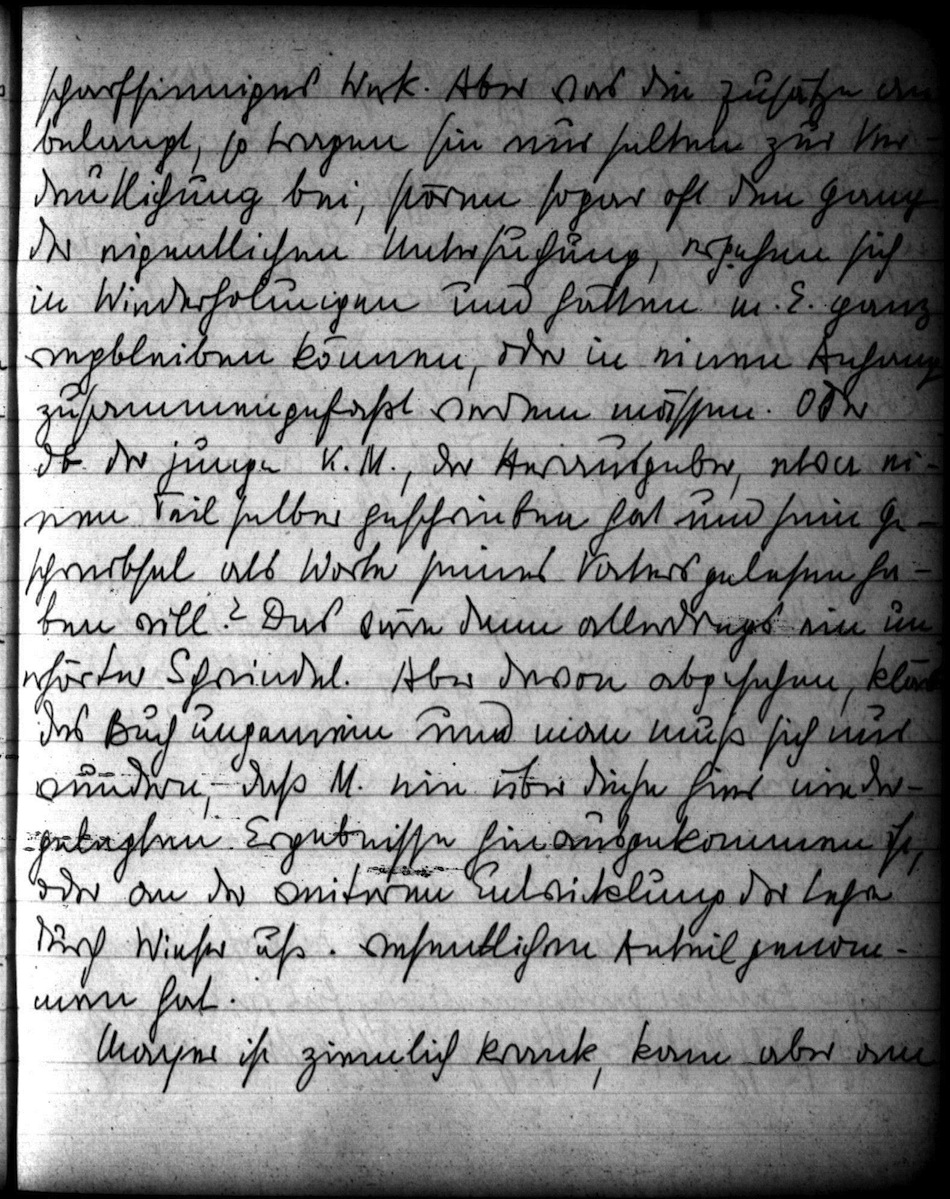 scharfsinniges Werk. Aber was die Zusätze an
belangt, so tragen sie nur selten zur Ver-
deutlichung bei, stören sogar oft den Gang
der eigentlichen Untersuchung, ergehen sich
in Wiederholungen und hätten m. E. ganz
wegbleiben können, oder in einem Anhang
zusammengefaßt werden müssen. Oder
ob der junge K. M., der Herausgeber, etwa ei-
nen Teil selber geschrieben hat und sein Ge-
schreibsel als Worte seines Vaters gelesen ha-
ben will? Das wäre denn allerdings ein un
erhörter Schwindel. Aber davon abgesehen, klärt
das Buch ungemein und man muß sich nur
wundern, daß M. nie über diese hier nieder-
gelegten Ergebnisse hinausgekommen ist,
oder an der weiteren Entwicklung der Lehre
durch Wieser usf. wesentlichen Anteil genom-
men hat.
Mayer ist ziemlich krank, kam aber am